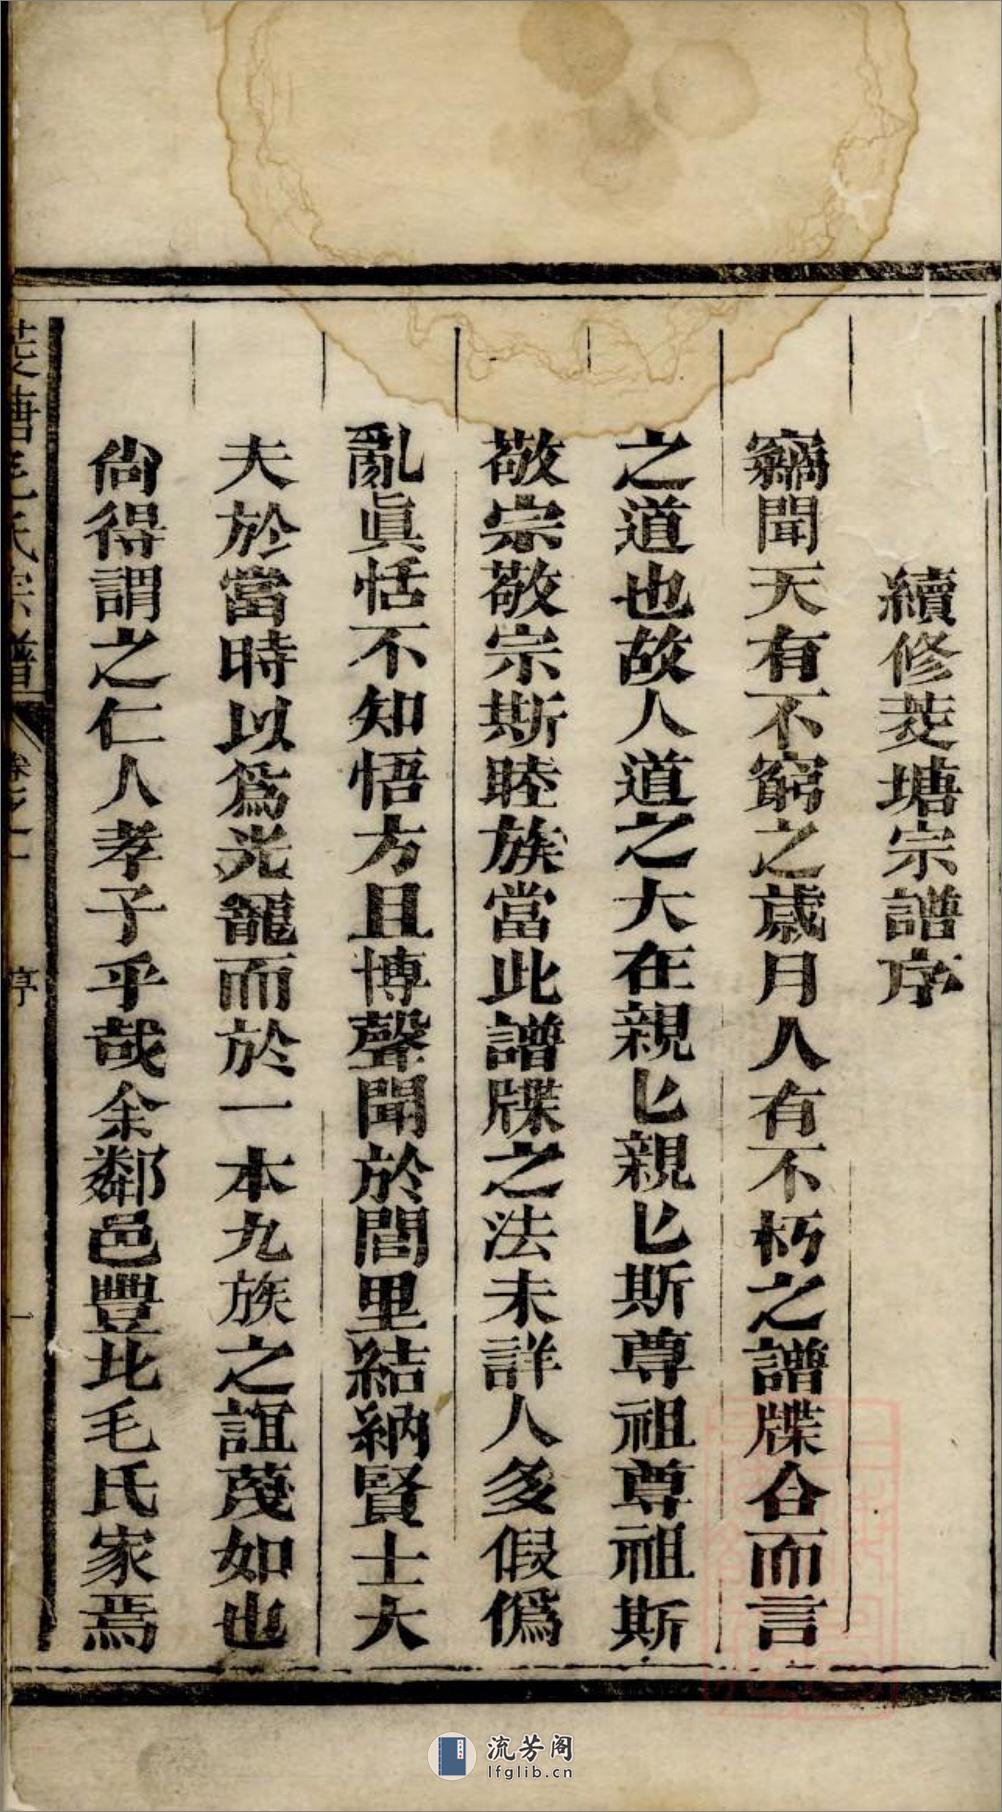 續修茭塘宗譜序
竊聞天有不窮之歳月人有不朽之譜牒合而言
之道也故人道之大在親匕親匕斯尊祖尊祖斯
敬宗敬宗斯睦族當此譜牒之法未詳人多假僞
亂眞恬不知悟方且博聲聞於閭里結納賢士大
夫於當時以爲光寵而於一本九族之誼蔑如也
尙得謂之仁人孝子乎哉余鄰邑豐北毛氏家焉
茭塘毛氏宗譜 卷之一 序 一
流芳阁
lfglib.cn